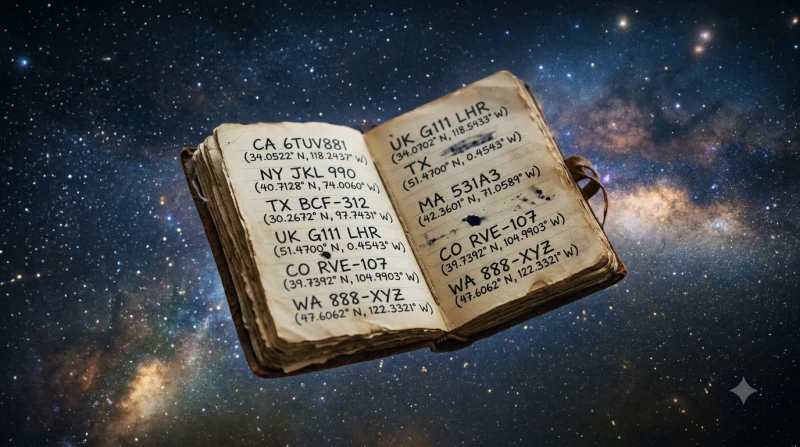 CA 6TUV881
(34.0522° N, 118.2437° W)
NY JKL 990
(40.7128° N, 74.0060° W)
TX BCF-312
(30.2672° N, 97.7431° W)
UK G111 LHR
(51.4700° N, 0.4543° W)
CO RVE-107
(39.7392° N, 104.9903° W)
WA 888-XYZ
(47.6062° N, 122.3321° W)
UK G111 LHR
(34.0702° N, 118.5433° W)
TX
(51.4700° N, 0.4543° W)
MA 531A3
(42.3601° N, 71.0589° W)
CO RVE-107
(39.7392° N, 104.9903° W)
WA 888-XYZ
(47.6062° N, 122.3321° W)